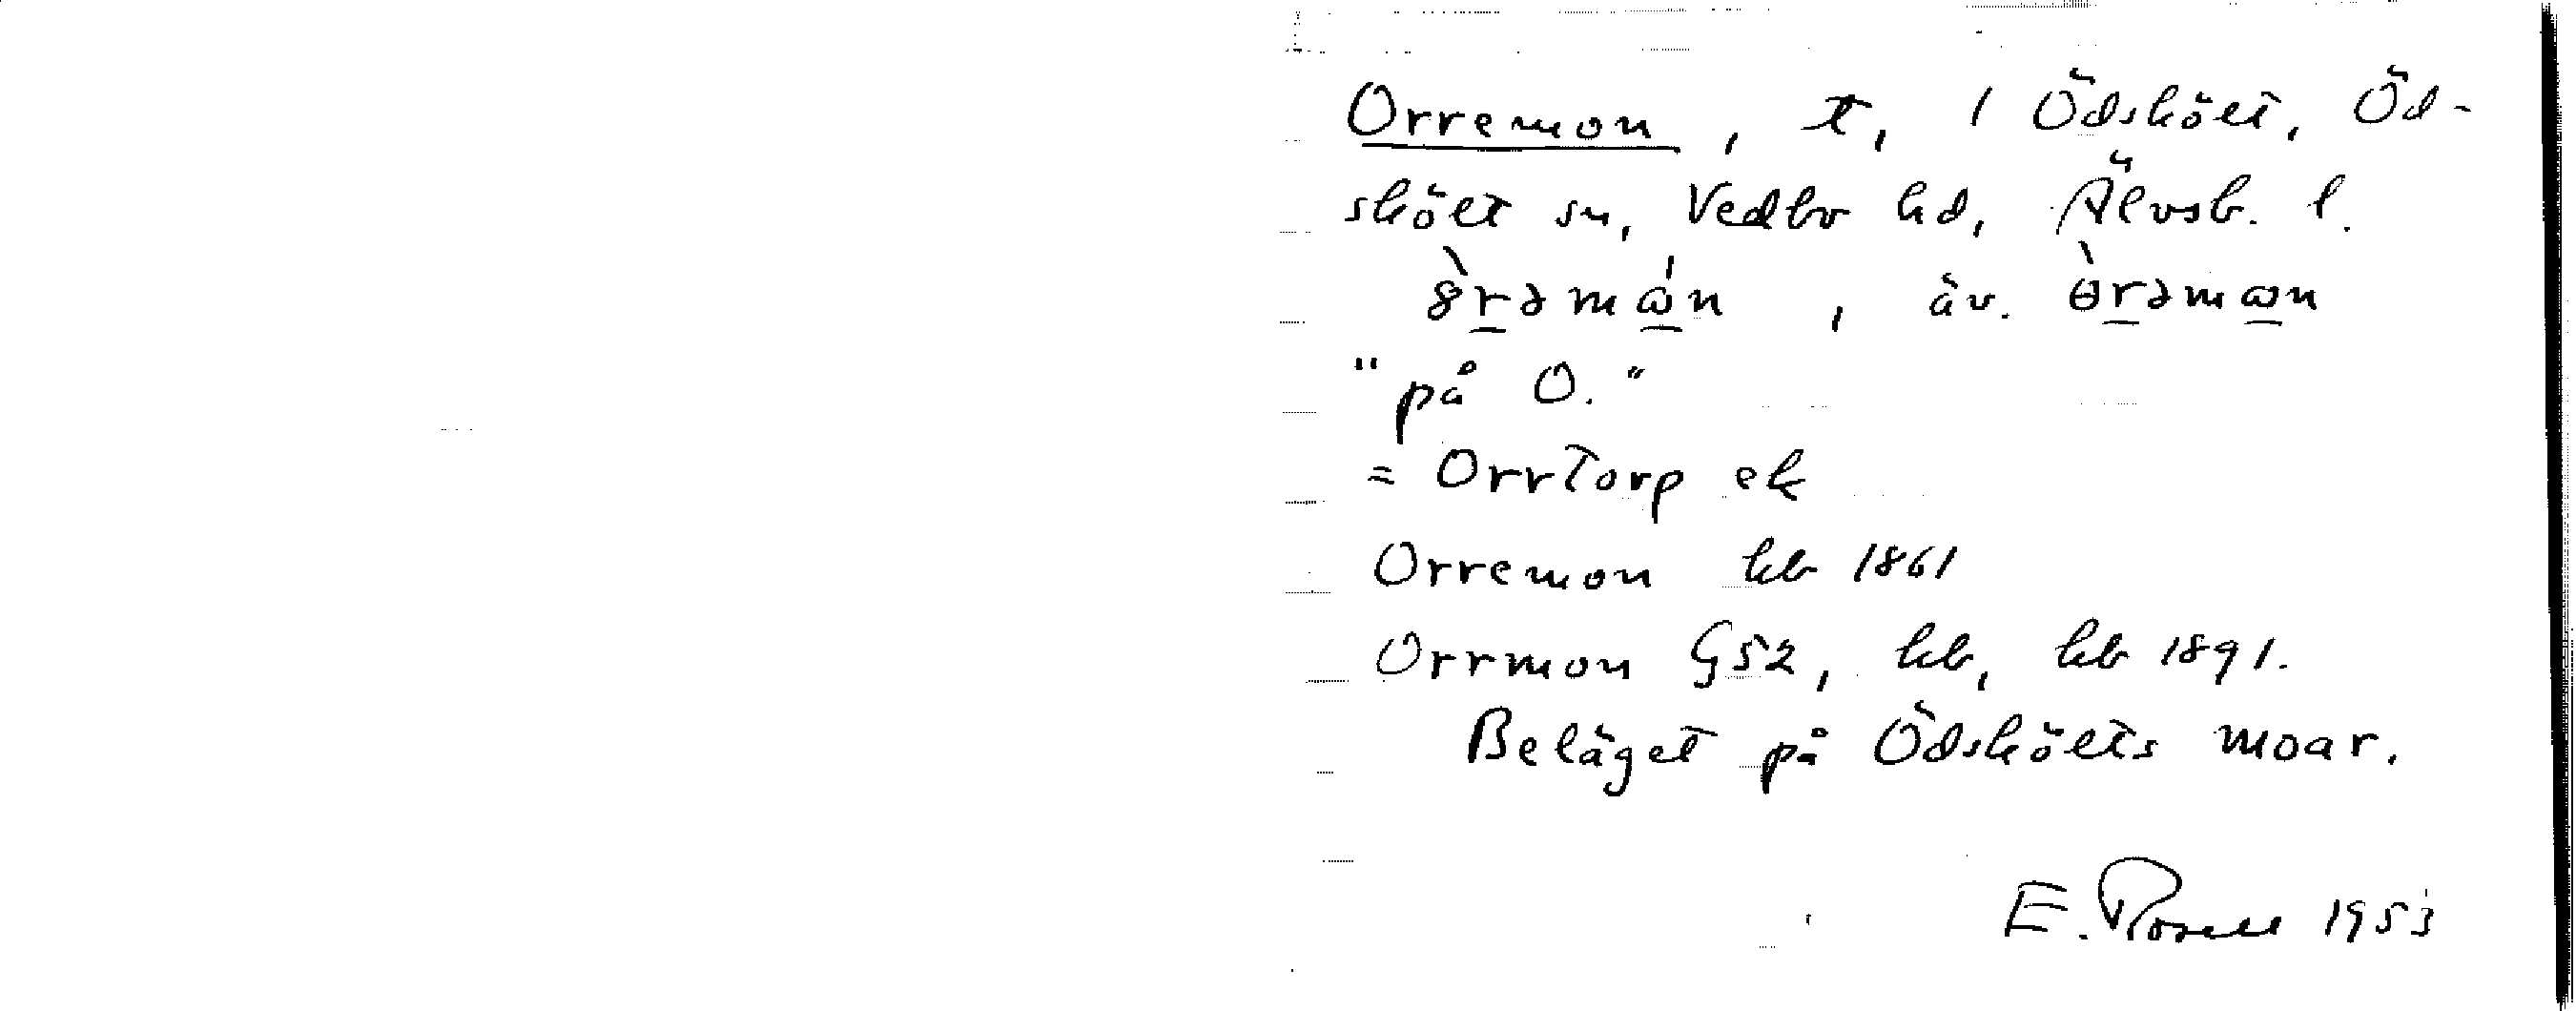 Orremon, t, 1 Ödskölt, Öd-
skölt sn, Vedbo hd, Älvsb. l.
, äv.
"på O."
= Orrtorp ek
Orremon hb 1861
Orrmon G52, hb, hb 1891.
Beläget på Ödskölts moar.
E. Rosell 1953